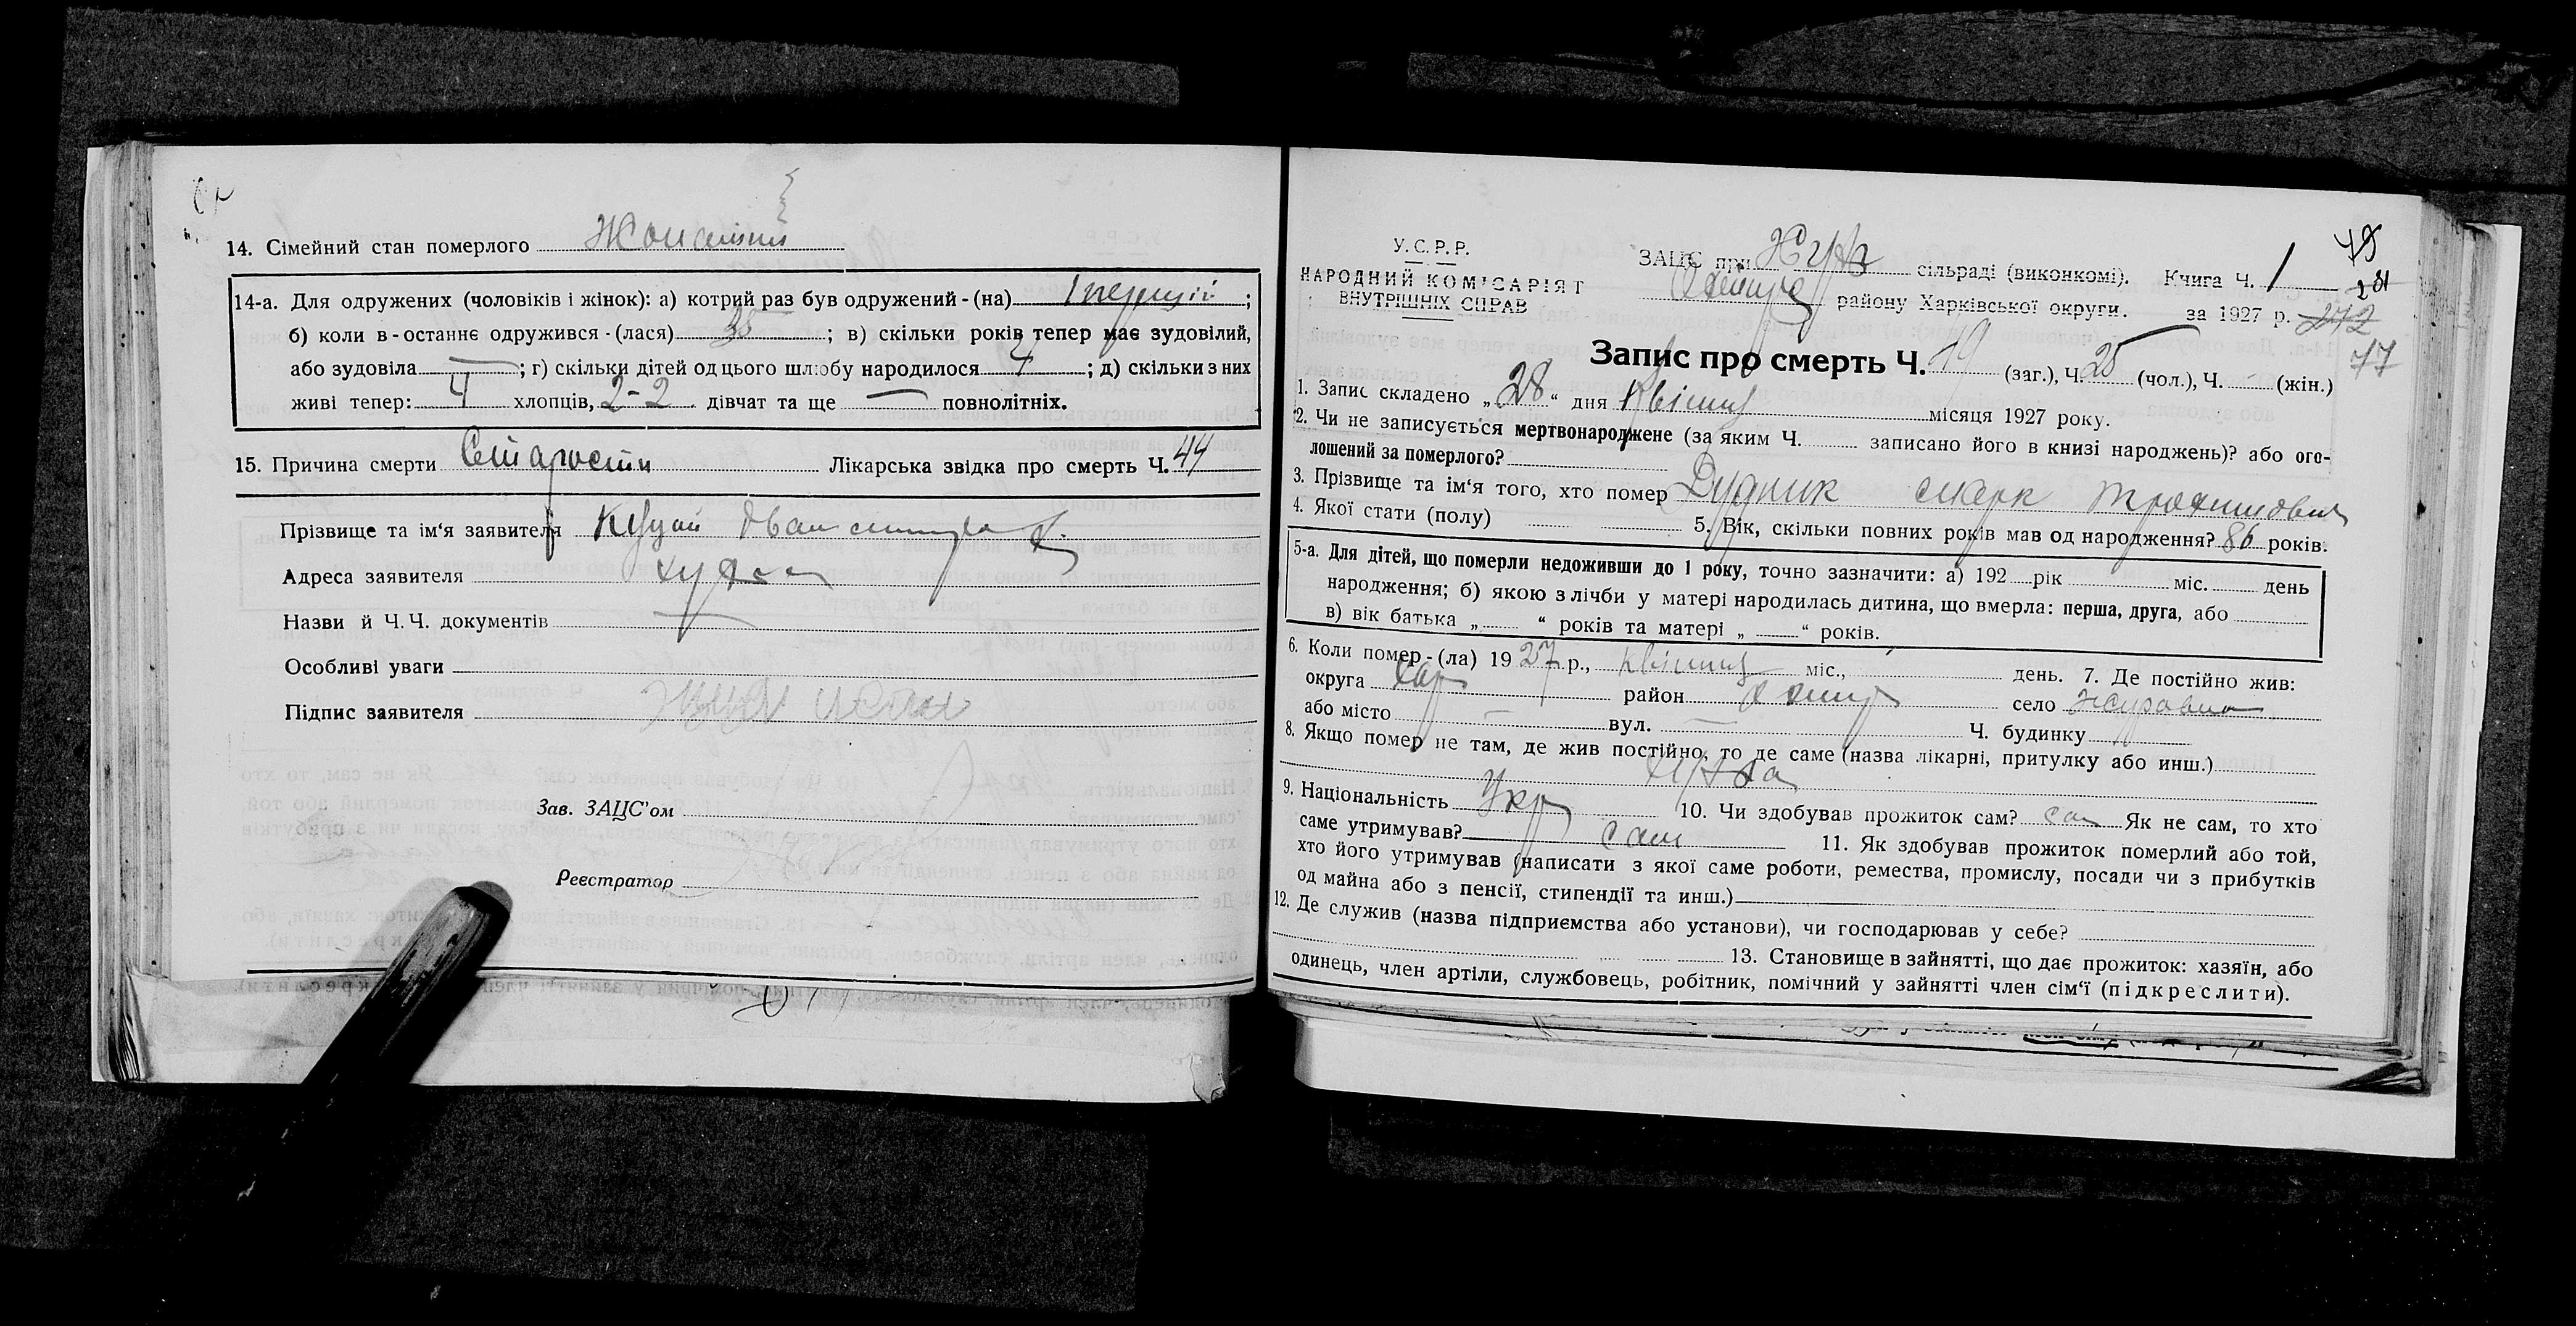 14. Сімейний стан померлого
14-а. Для одружених (чоловіків і жінок): а) котрий раз був одружений - (на) 1 перший ;
б) коли в-останнє одружився - (лася) 38 ; в) скільки років тепер має зудовілий,
або зудовіла — ; г) скільки дітей од цього шлюбу народилося 4 ; д) скільки з них
живі тепер: 4 хлопців, 2-2 дівчат та ще — повнолітніх.
15. Причина смерти Старости Лікарська звідка про смерть Ч. 44
Прізвище та ім'я заявителя Іван
Адреса заявителя
Назви й Ч.Ч. документів —
Особливі уваги
Підпис заявителя
Зав. ЗАЦС'ом
Реєстратор
У.С.Р.Р.
НАРОДНИЙ КОМІСАРІЯТ
ВНУТРІШНІХ СПРАВ
ЗАЦС при сільраді (виконкомі). Книга Ч. 1
району Харківської округи. за 1927 р. 272
77
Запис про смерть Ч. 79 (заг.), Ч. 25 (чол.), Ч. - (жін.)
1. Запис складено „ 28 “ дня Квітня місяця 1927 року.
2. Чи не записується мертвонароджене (за яким Ч. записано його в книзі народжень)? або ого-
лошений за померлого?
3. Прізвище та ім'я того, хто помер Дудник Марк Трохимович
4. Якої стати (полу) 5. Вік, скільки повних років мав од народження? 86 років.
5-а. Для дітей, що померли недоживши до 1 року, точно зазначити: а) 192 рік міс. день
народження; б) якою з лічби у матері народилась дитина, що вмерла: перша, друга, або
в) вік батька „ “ років та матері „ “ років.
6. Коли помер - (ла) 1927 р., квітня міс., день. 7. Де постійно жив:
округа Хар район село Журавна
або місто — вул. — Ч. будинку
8. Якщо помер не там, де жив постійно, то де саме (назва лікарні, притулку або инш.)
9. Національність Укр 10. Чи здобував прожиток сам? Сам Як не сам, то хто
саме утримував? Сам 11. Як здобував прожиток померлий або той,
хто його утримував (написати з якої саме роботи, ремества, промислу, посади чи з прибутків
од майна або з пенсії, стипендії та инш.)
12. Де служив (назва підприємства або установи), чи господарював у себе?
13. Становище в зайнятті, що дає прожиток: хазяїн, або
одинець, член артіли, службовець, робітник, помічний у зайнятті член сім'ї (підкреслити).